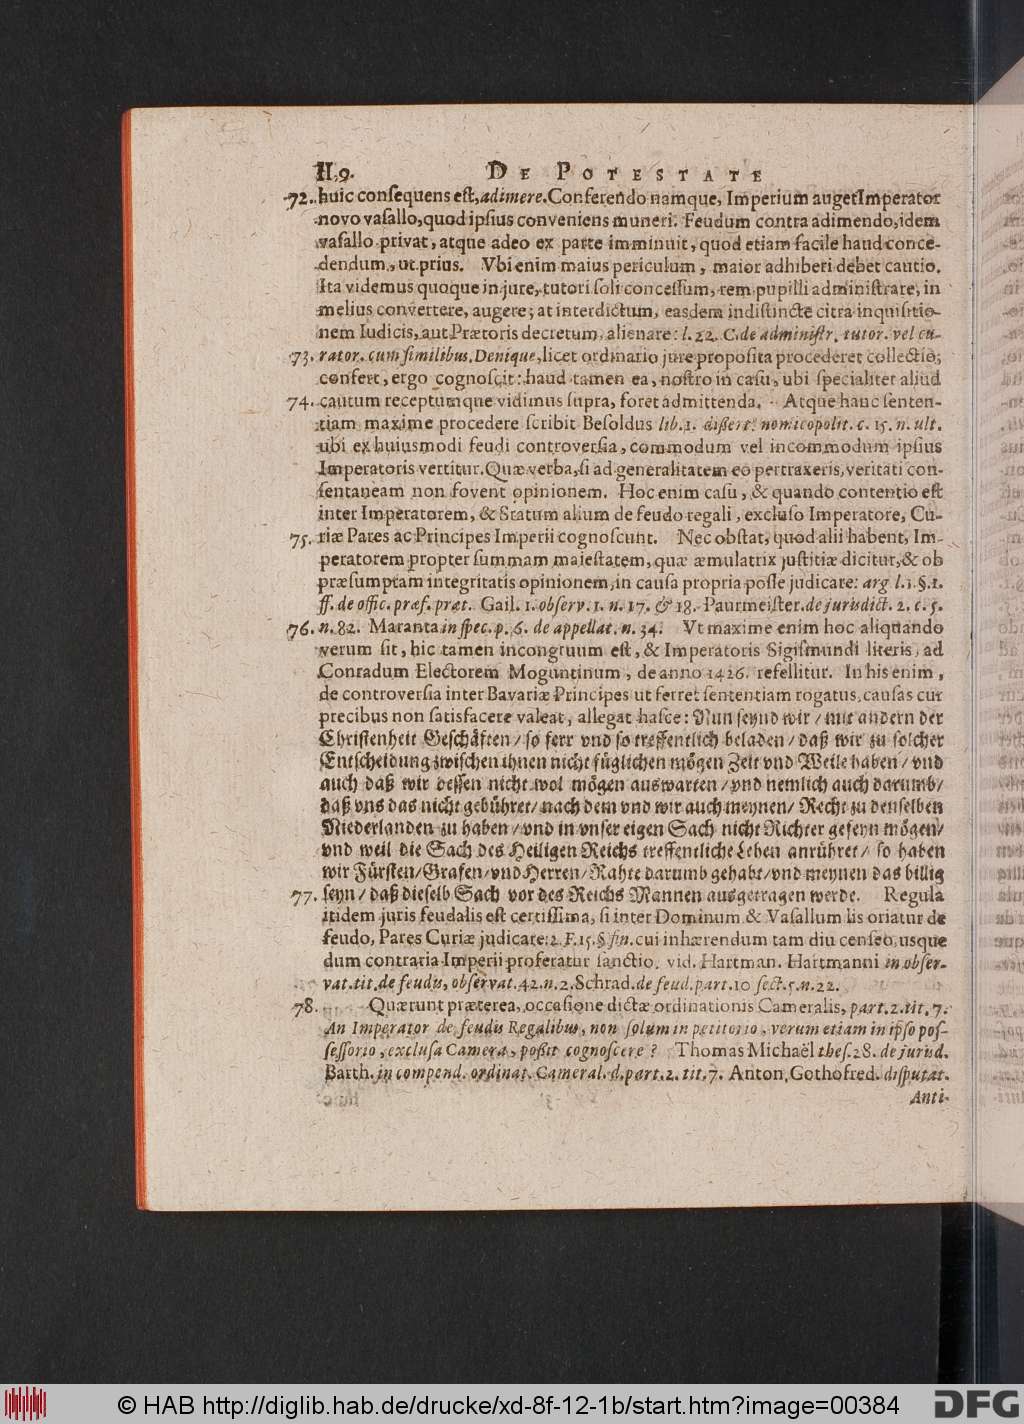 II, 9. DE POTESTATE
72. huic conſequens eſt, adimere. Conferendo namque, Imperium auget Imperator
novo vaſallo, quod ipſius conveniens muneri. Feudum contra adimendo, idem
vaſallo privat, atque adeo ex parte imminuit, quod etiam facile haud conce-
dendum, ut prius. Vbi enim maius periculum, maior adhiberi debet cautio.
Ita videmus quoque in jure, tutori ſoli conceſſum, rem pupilli adminiſtrare, in
melius convertere, augere; at interdictum, easdem indiſtincte citra inquiſitio-
nem Iudicis, aut Prætoris decretum, alienare: l. 22. C. de adminiſtr. tutor. vel cu-
73. rator. cum ſimilibus. Denique, licet ordinario jure propoſita procederet collectio;
confert, ergo cognoſcit: haud tamen ea, noſtro in caſu, ubi ſpecialiter aliud
74. cautum receptumque vidimus ſupra, foret admittenda. Atque hanc ſenten-
tiam maxime procedere ſcribit Beſoldus lib. 1. diſſert. nomicopolit. c. 15. n. ult.
ubi ex huiusmodi feudi controverſia, commodum vel incommodum ipſius
Imperatoris vertitur. Quæ verba, ſi ad generalitatem eo pertraxeris, veritati con-
ſentaneam non fovent opinionem. Hoc enim caſu, & quando contentio eſt
inter Imperatorem, & Statum alium de feudo regali, excluſo Imperatore, Cu-
75. riæ Pares ac Principes Imperii cognoſcunt. Nec obſtat, quod alii habent, Im-
peratorem propter ſummam maieſtatem, quæ æmulatrix juſtitiæ dicitur, & ob
præſumptam integritatis opinionem, in cauſa propria poſſe judicare: arg l. 1. §. 1.
ff. de offic. præf. præt. Gail. 1. obſerv. 1. n. 17. & 18. Paurmeiſter. de jurisdict. 2. c. 5.
76. n. 82. Maranta in ſpec. p. 6. de appellat. n. 34. Vt maxime enim hoc aliquando
verum ſit, hic tamen incongruum eſt, & Imperatoris Sigiſmundi literis, ad
Conradum Electorem Moguntinum, de anno 1426. refellitur. In his enim,
de controverſia inter Bavariæ Principes ut ferret ſententiam rogatus, cauſas cur
precibus non ſatisfacere valeat, allegat haſce: Nun ſeynd wir / mit andern der
Chriſtenheit Geſchäften / ſo ferr vnd ſo treffentlich beladen / daß wir zu ſolcher
Entſcheidung zwiſchen ihnen nicht füglichen mögen Zeit vnd Weile haben / vnd
auch daß wir deſſen nicht wol mögen auswarten / vnd nemlich auch darumb /
daß vns das nicht gebühret / nach dem vnd wir auch meynen / Recht zu denſelben
Niederlanden zu haben / vnd in vnſer eigen Sach nicht Richter geſeyn mögen /
vnd weil die Sach des Heiligen Reichs treffentliche Lehen anrühret / ſo haben
wir Fürſten / Grafen / vnd Herren / Rahte darumb gehabt / vnd meynen das billig
77. ſeyn / daß dieſelb Sach vor des Reichs Mannen ausgetragen werde. Regula
itidem juris feudalis eſt certiſſima, ſi inter Dominum & Vaſallum lis oriatur de
feudo, Pares Curiæ judicare: 2. F. 15. § fin. cui inhærendum tam diu cenſeo, usque
dum contraria Imperii proferatur ſanctio. vid. Hartman. Hartmanni in obſer-
vat. tit. de feudis, obſervat. 42. n. 2. Schrad. de feud. part. 10 ſect. 5. n. 22.
78. Quærunt præterea, occaſione dictæ ordinationis Cameralis, part. 2. tit. 7.
An Imperator de feudis Regalibus, non ſolum in petitorio, verum etiam in ipſo poſ-
ſeſſorio, excluſa Camera, poſſit cognoſcere? Thomas Michaël theſ. 28. de jurisd.
Barth. in compend. ordinat. Cameral. d. part. 2. tit. 7. Anton. Gothofred. diſputat.
Anti-
© HAB http://diglib.hab.de/drucke/xd-8f-12-1b/start.htm?image=00384
DFG